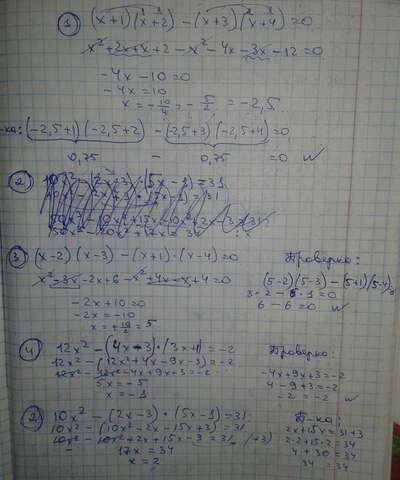 ① (x+1)(x+2) - (x+3)(x+4)=0
x²+2x+x+2 - x² - 4x - 3x - 12=0
-4x - 10 = 0
-4x = 10
x = -10/4 = -5/2 = -2,5
-ка: (-2,5+1)(-2,5+2) - (-2,5+3)(-2,5+4)=0
0,75 - 0,75 = 0
②
③ (x-2)(x-3) - (x+1)·(x-4)=0
x² - 3x - 2x+6 - x² + 4x - x + 4=0
-2x+10=0
-2x = -10
x = 5
Проверка:
(5-2)(5-3) - (5+1)(5-4)
3·2 - 6·1=0
6 - 6=0
④ 12x² - (4x-3)·(3x+1) = -2
12x² - (12x²+4x - 9x - 3) = -2
12x² - 12x² - 4x + 9x + 3 = -2
5x = -5
x = -1
Проверка:
-4x+9x+3=-2
4 - 9+3=-2
-2 = -2
② 10x² - (2x-3)·(5x-1)=31
10x² - (10x² - 2x - 15x+3) = 31
10x² - 10x² + 2x + 15x - 3 = 31 (+3)
17x = 34
x = 2
П-ка:
2x+15x = 31+3
2·2+15·2=34
4 + 30 = 34
34 = 34